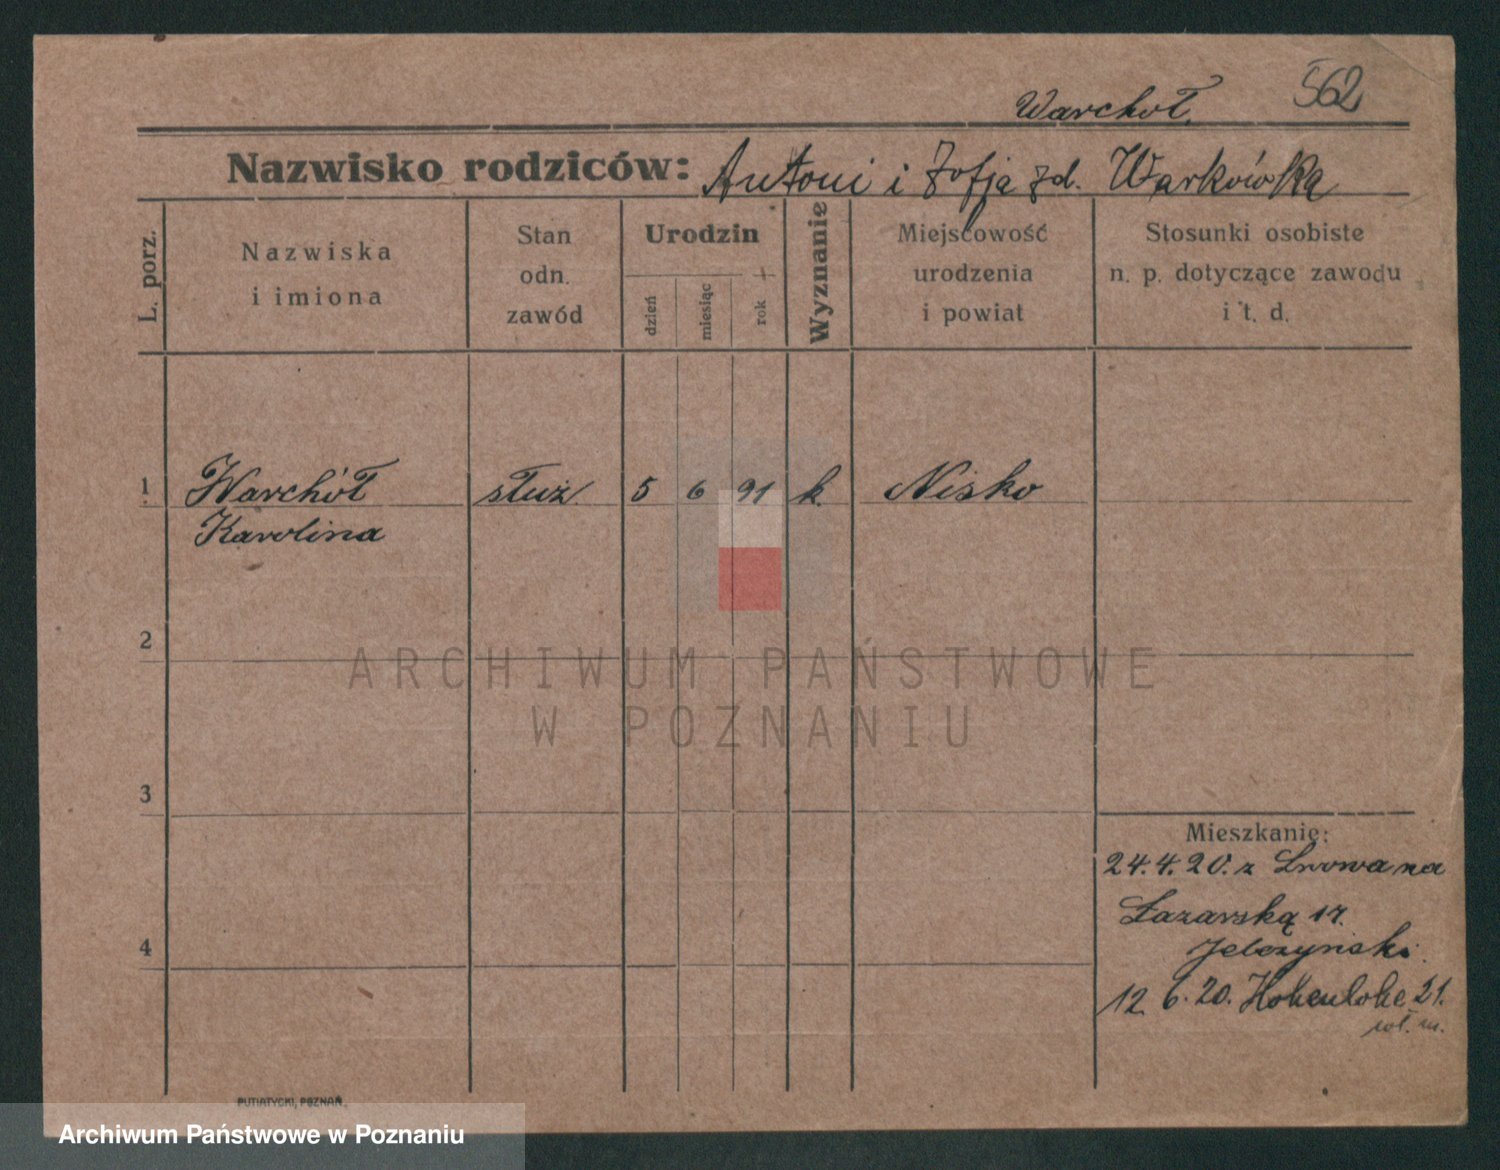 562
Warchoł.
Nazwisko rodziców: Antoni i Zofja zd. Warkówka
L. porz.
Nazwiska
i imiona
Stan
odn.
zawód
Urodzin
dzień
miesiąc
rok
Wyznanie
Miejscowość
urodzenia
i powiat
Stosunki osobiste
n. p. dotyczące zawodu
i t. d.
1 Warchół służ. 5 6 91 k. Nisko
Karolina
2
3
4
Mieszkanie:
24.4.20. z Lwowa na
Łazarską 17.
Jelczyński.
12 6. 20. Hohenlohe 21.
PUTIATYCKI, POZNAŃ.
ARCHIWUM PAŃSTWOWE
W POZNANIU
Archiwum Państwowe w Poznaniu